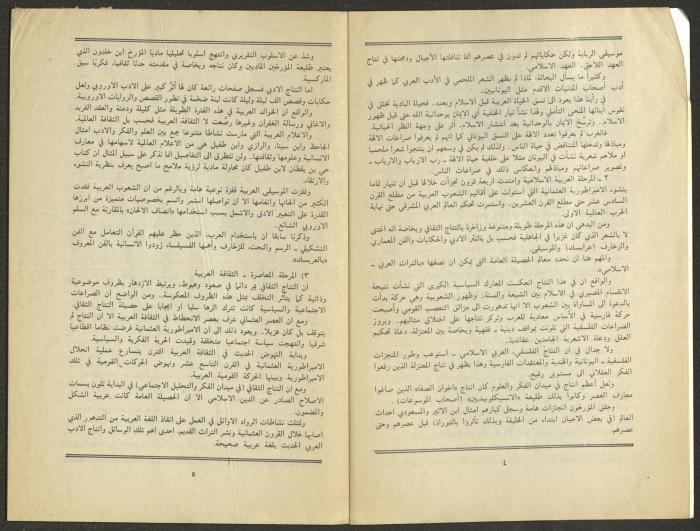 موسيقى الربابة ولكن حكاياتهم لم تدون في عصرهم انما تناقلتها الأجيال ودمجتها في نتاج
العهد اللاحق. العهد الاسلامي.
وكثيرا ما يسأل البحاثة، لماذا لم يظهر الشعر الملحمي في الأدب العربي كما ظهر في
أدب أصحاب المدنيات الاقدم مثل اليونانيين.
في رأينا هذا يعود الى نسق الحياة العربية قبل الاسلام وبعده. فحياة البادية تخلق في
نفوس ابنائها المنحى التأملي ولهذا نشأ تيار الحنفية أي الايمان بوحدانية الله حتى قبل ظهور
الاسلام. وترسّخ الايمان بالوحدانية بعد انتشار الاسلام، أثر على وجهة النظر الحياتية.
فالعرب لم يعرفوا تعدد الالهة على النسق اليوناني كما انهم لم يعرفوا صراعات الالهة
ومبادئها وتدخلها المتناقض في حياة الناس. ولذلك لم يكن في وسعهم ان ينتجوا شعرا ملحميا
او ملاحم شعرية نشأت في اليونان مثلا على خلفية حياة الالهة ـ رب الارباب والارباب ـ
وتصوير صراعاتهم ومبادئهم وانعكاس ذلك في صراعات الناس.
٢ ـ المرحلة العربية الاسلامية وامتدت اربعة قرون تجزأت خلالها قبل ان تنهار تماما
بنشوء الامبراطورية العثمانية التي استولت على أقاليم الشعوب العربية من مطلع القرن
السادس عشر حتى مطلع القرن العشرين. واستمرت تحكم العالم العربي المشرقي حتى نهاية
الحرب العالمية الاولى.
ومن البديهي ان هذه المرحلة طويلة ومتنوعة وزاخرة بالنتاج الثقافي وبخاصة انه اغتنى
لا بالشعر الذي كان غزيرا في الجاهلية فحسب بل بالنثر الادبي والحكايات والفن المعماري
والزخارف (عرابيسك) والموسيقى.
والمهم هنا ان نحدد معالم الحصيلة العامة التي يمكن ان نصفها «بالتراث العربي ـ
الاسلامي».
والواقع ان في هذا النتاج انعكست المعارك السياسية الكبرى التي نشأت نتيجة
الانقسام المصيري في الاسلام بين الشيعة والسنة. وظهور الشعوبية وهي حركة بدأت
بالدعوة الى المساواة بين الشعوب الا انها تدهورت الى مزالق التعصب القومي وأصبحت
حركة فارسية في الأساس معادية للعرب وتركز نتاجها على اختلاق مثالبهم. وبروز
الصراعات الفلسفية التي تلونت بمواقف دينية ـ فقهية وبخاصة بين المعتزلة، دعاة تحكيم
العقل ودعاة الاشعرية الجامدين عقائديا.
ولا جدال في ان النتاج الفلسفي، العربي الاسلامي ـ استوعب وطور المنجزات
الفلسفية ـ اليونانية والهندية والمعتقدات الفارسية وهذا يظهر في نتاج المعتزلة الذين رفعوا
الفكر العقلاني الى مستوى رفيع.
ولعل أعظم انتاج في ميدان الفكر والعلوم كان انتاج «اخوان الصفا» الذين صاغوا
معارف العصر وكانوا بذلك طليعة «الانسيكلوبيديين» (أصحاب الموسوعات).
وحقق المؤرخون انجازات هامة وسجل كبارهم امثال ابن الاثير والمسعودي احداث
العالم (في بعض الاحيان ابتداء من الخليقة وبذلك تأثروا بالتوراة) قبل عصرهم وحتى
عصرهم.
٤
وشذ عن الاسلوب التقريري وانتهج أسلوبا تحليليا ماديا المؤرخ ابن خلدون الذي
يعتبر طليعة المؤرخين الماديين وكان نتاجه وبخاصة في مقدمته حدثا ثقافيا، فكريا سبق
الماركسية.
اما النتاج الادبي فسجل صفحات رائعة كان لها أثر كبير على الادب الاوروبي ولعل
حكايات وقصص الف ليلة وليلة كانت لبنة ضخمة في تطور القصص والروايات الاوروبية.
والواقع ان الحوالد العربية في هذه الفترة الطويلة مثل كليلة ودمنة والعقد الفريد
والاغاني ورسالة الغفران وغيرها رصّعت لا الثقافة العربية فحسب بل الثقافة العالمية.
والاعلام العربية التي مارست نشاطا متنوعا يجمع بين العلم والفكر والادب امثال
الجاحظ وابن سينا، والرازي وابن طفيل هي من الاعلام العالمية لاسهامها في معارف
الانسانية وعلومها وثقافتها. ولن نتطرق الى التفاصيل انما نذكر على سبيل المثال ان كتاب
حي بن يقظان لابن طفيل كان محاولة مادية لرؤية ملامح ما اصبح يعرف بنظرية النشوء
والارتقاء.
وقفزت الموسيقى العربية قفزة نوعية هامة وبالرغم من ان الشعوب العربية فقدت
الكثير من الحانها وانغامها الا ان تواصلها استمر واتسم بخصوصيات متميزة من ابرزها
القدرة على التعبير الادق والاشمل بسبب استخدامها «انصاف الالحان» بالمقارنة مع السلم
الاوروبي الشائع.
وذكرنا سابقا ان باستخدام العرب، الذين حظر عليهم القرآن التعامل مع الفن
التشكيلي ـ الرسم والنحت، للزخارف وأهمها الفسيفساء، زودوا الانسانية بالفن المعروف
«بالعربسك».
٣) المرحلة المعاصرة ـ الثقافة العربية
ان النتاج الثقافي يمر دائما في صعود وهبوط، ويرتبط الازدهار بظروف موضوعية
وذاتية كما يتأثر التخلف بمثل هذه الظروف المعكوسة. ومن الواضح ان الصراعات
الاجتماعية والسياسية كانت تترك اثرها سلبا او ايجابا على حصيلة النتاج الثقافي.
ومع ان العصر العثماني عرف بعصر الانحطاط في الثقافة العربية الا ان النتاج لم
يتوقف بل كان هزيلا.. ويعود ذلك الى ان الامبراطورية العثمانية فرضت نظاما اقطاعيا
شرقيا وانتهجت سياسة اجتماعيا متخلفة وقيدت الحرية الفكرية والسياسية.
وبداية النهوض الحديث في الثقافة العربية اقترن بتسارع عملية انحلال
الامبراطورية العثمانية في القرن التاسع عشر ونهوض الحركات القومية في تلك
الامبراطورية وبينها الحركة القومية العربية.
ومع ان النتاج الثقافي (في ميدان الفكر والتحليل الاجتماعي) في البداية تلون بسمات
الاصلاح الصادر عن الدين الاسلامي الا ان الحصيلة العامة كانت عربية الشكل
والمضمون.
وتمثلت نشاطات الرواد الاوائل في العمل على انقاذ اللغة العربية من التدهور الذي
اصابها خلال القرون العثمانية ونشر التراث القديم، احدى اهم تلك الوسائل وانتاج الادب
العربي الحديث بلغة عربية صحيحة.
٥